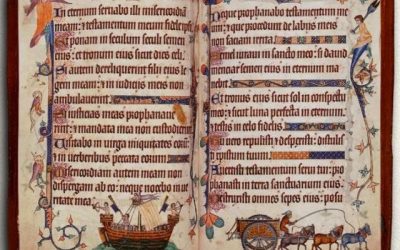 In eternum seruabo illi misericordiã
meam: et testamentum meum fidele ipsi
Et ponam in seculum seculi semen
eius: et tronum eius sicut dies celi
Si autem dereliquerint filii eius le
gem meam: et in iudiciis meis non
ambulauerint
Si iusticias meas prophanauerint
et mandata mea non custodierint
Visitabo in uirga iniquitates eorum
et in uerberibus peccata eorum
Misericordiam autem meam non
dispergam ab eo: neque nocebo in ue
ritate mea
Neque prophanabo testamentum me
um: et que procedunt de labiis meis
non faciam irrita
in sancto meo: si dauid
menciar semen eius in eternum ma
nebit
Et tronus eius sicut sol in conspectu
meo: et sicut luna perfecta in eternum
et testis in celo fidelis
Tu uero repulisti et despexisti: distulisti
christum tuum
Auertisti testamentum serui tui: pro
phanasti in terra sanctuarium eius
Destruxisti omnes sepes eius: posui